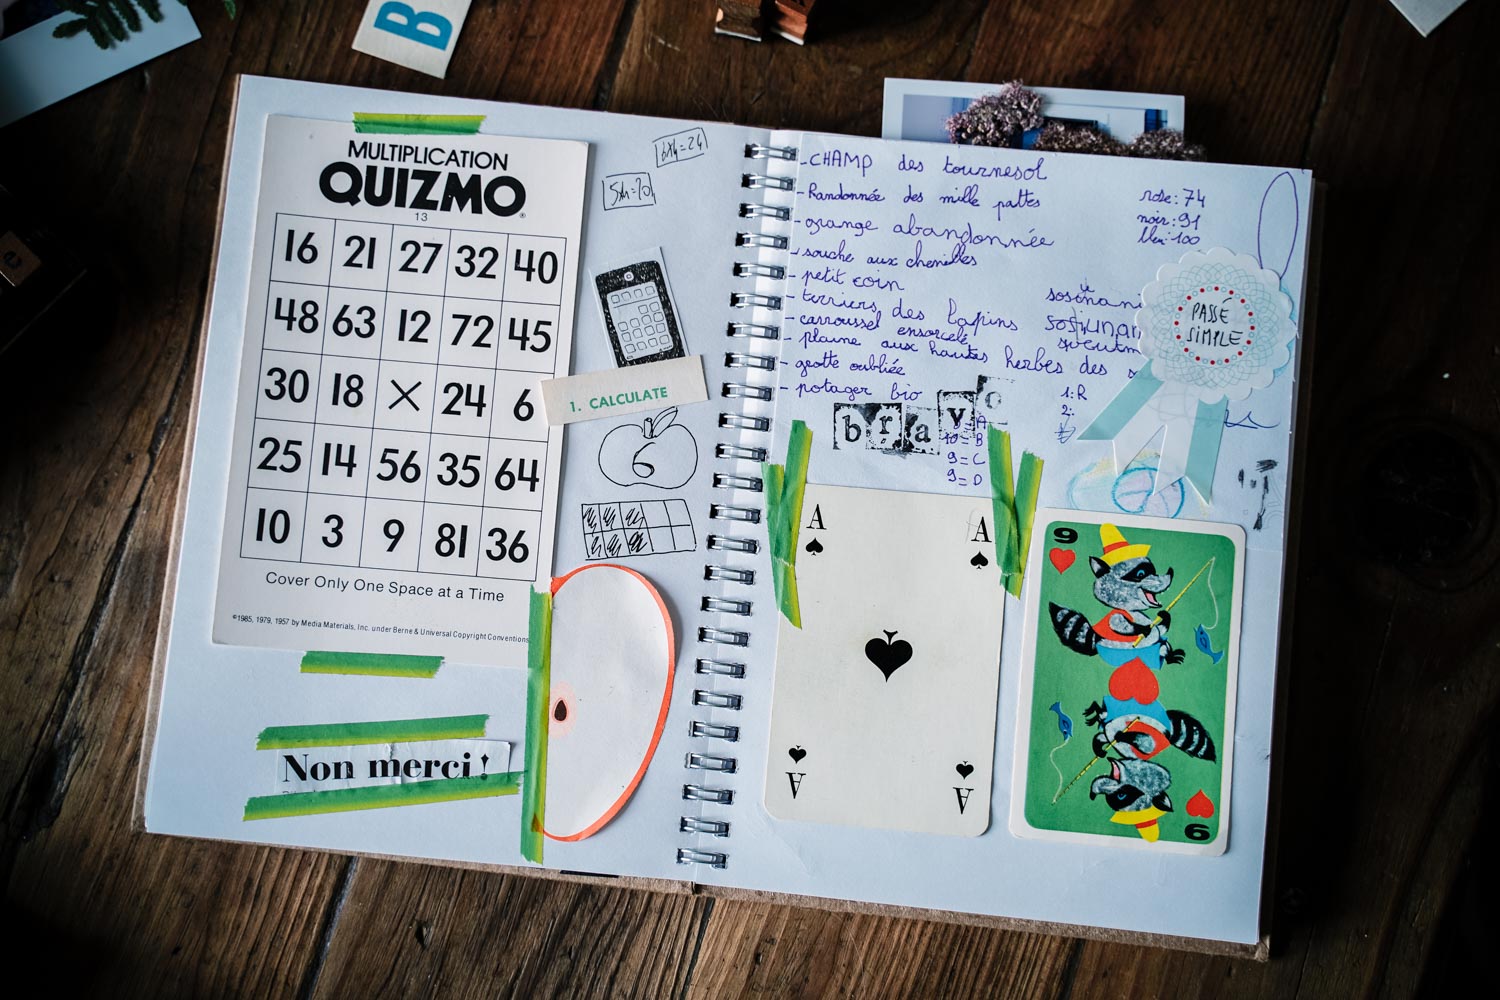 B
MULTIPLICATION
QUIZMO®
13
16 21 27 32 40
48 63 12 72 45
30 18 × 24 6
25 14 56 35 64
10 3 9 81 36
Cover Only One Space at a Time
©1985, 1979, 1957 by Media Materials, Inc. under Berne & Universal Copyright Conventions
6x4=24
5x4=20
1. CALCULATE
6
Non merci !
- CHAMP des tournesol
- Randonnée des mille pattes
- orange abandonnée
- souche aux chenilles
- petit coin
- terriers des lapins
- carroussel ensorcelé
- plaine aux hautes herbes des
- grotte oubliée
- potager bio
rose: 74
noir: 91
bleu: 100
PASSÉ
SIMPLE
1: R
2:
bravo
= A
10 = B
9 = C
9 = D
A A
A A
9
9